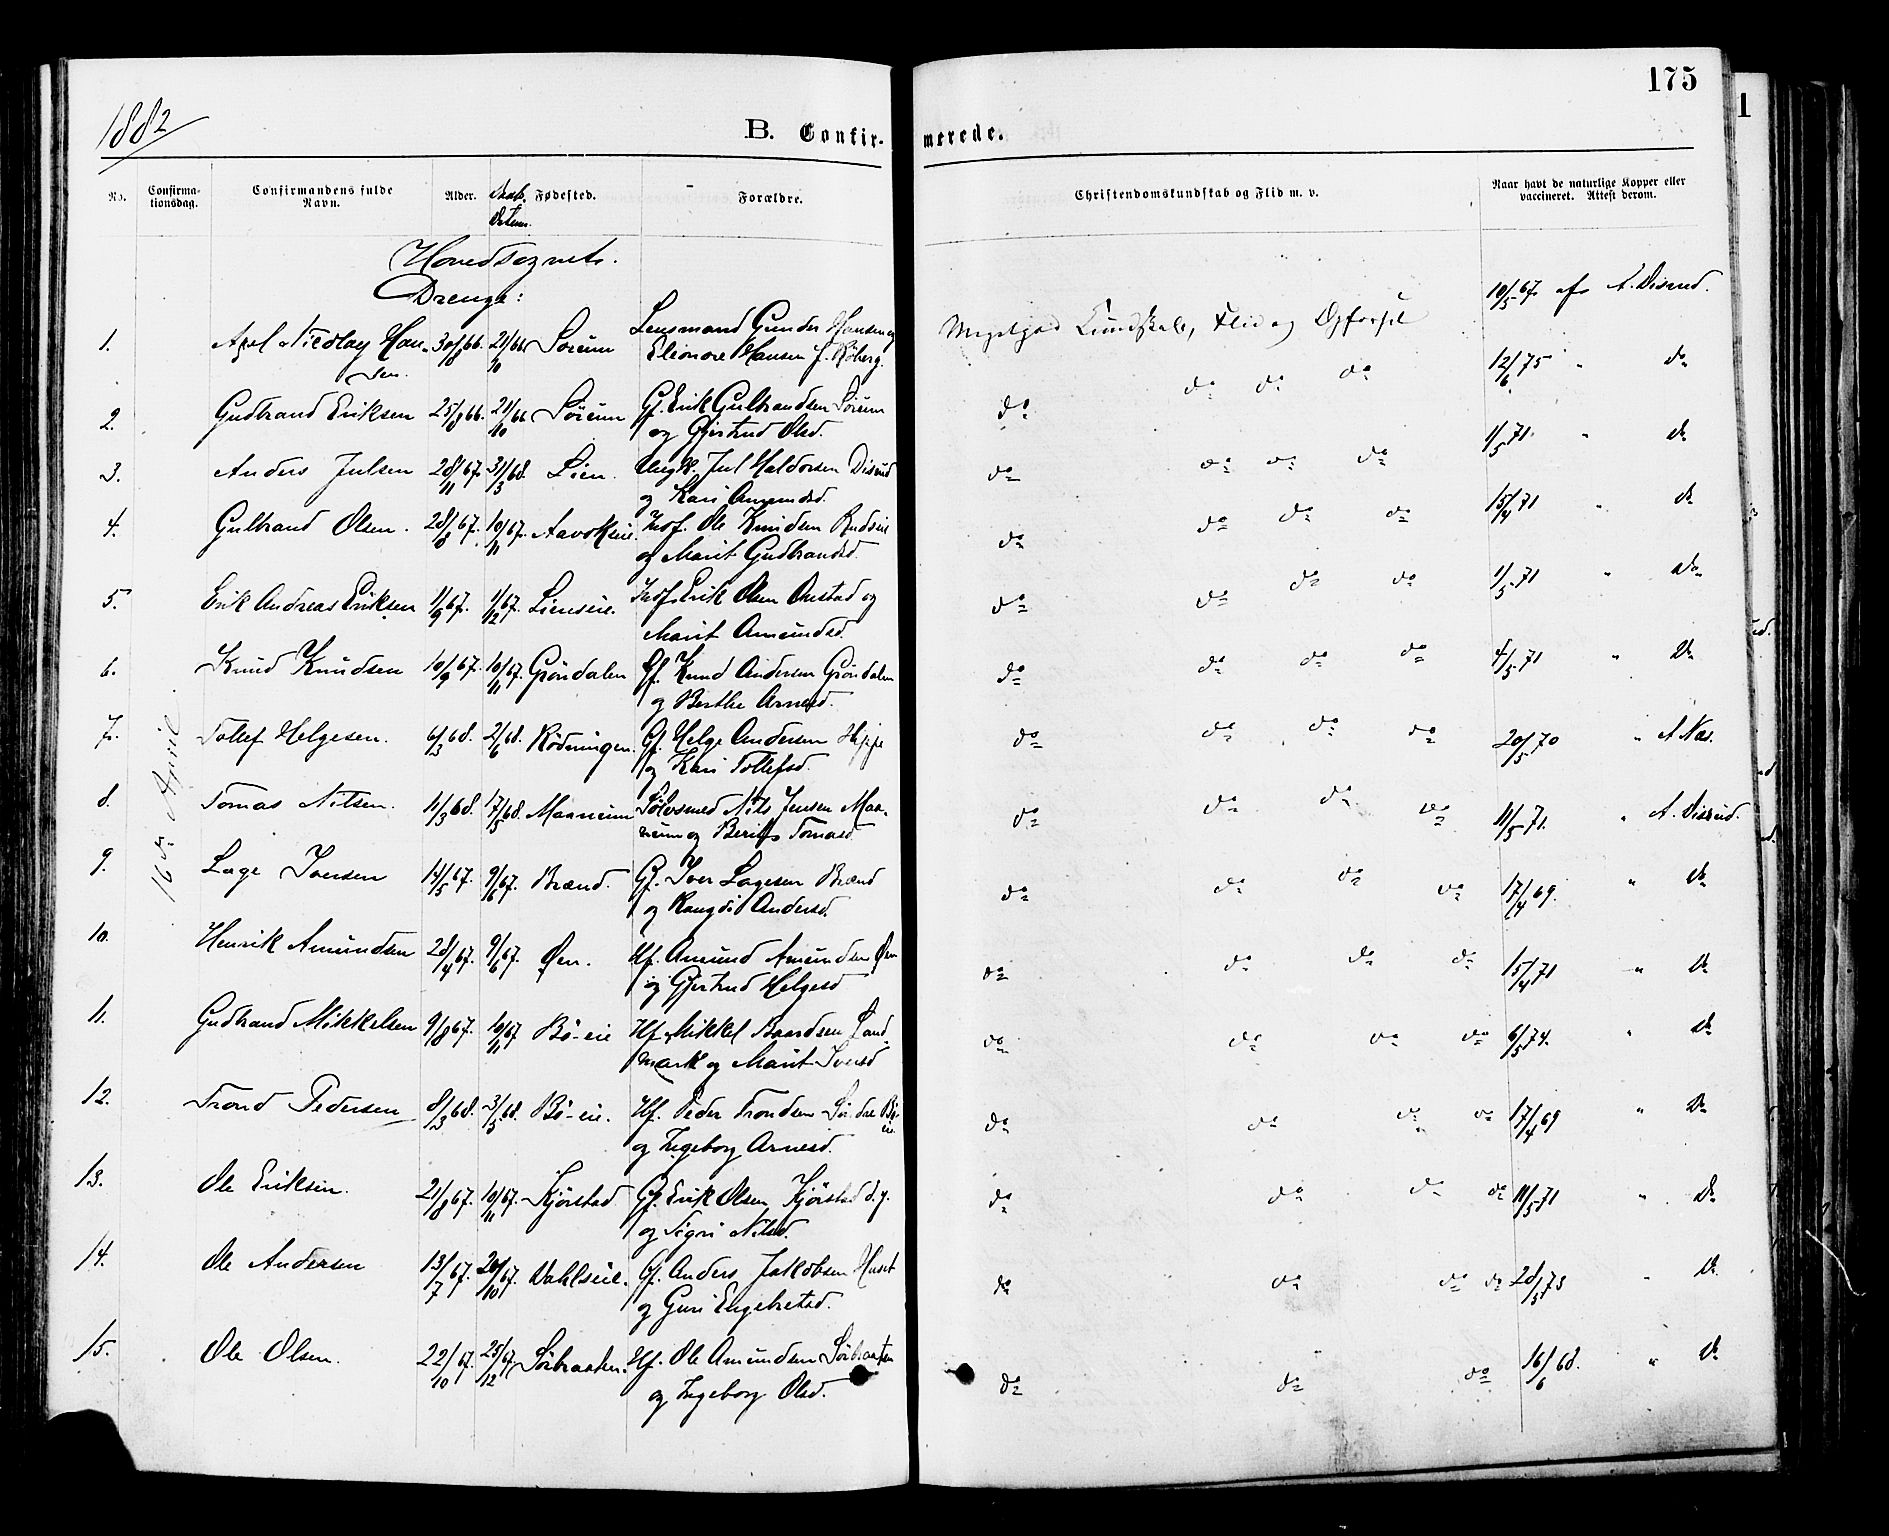 175
1
1882
B. Confir- merede.
No. Confirma-tionsdag. Confirmandens fulde Navn. Alder. Daab. Datum. Fødested. Forældre. Christendomskundskab og Flid m. v. Naar havt de naturlige Kopper eller vaccineret. Attest derom.
Hovedsognets
Drenge:
16de April
1. Axel Nicolay Han- 30/8 66. 21/10 66 Sorum Lensmand Gunder Hansen og Megetgod Kundskab, Flid og Opførsel 10/5 67 af A. Disrud.
sen. Eleonore Hansen f. Röberg.
2. Gudbrand Eriksen 25/8 66. 21/10 66 Sörum Gf. Erik Gulbrandsen Sörum do do do do 12/6 75 " do
og Gjertrud Olsd.
3. Anders Julsen 28/11 67. 31/3 68. Lien. Ungk. Jul Haldorsen Disrud do do do do 1/5 71. " do
og Kari Amundsd.
4. Gulbrand Olsen. 28/8 67. 10/11 67. Aavokseie. Inds. Ole Knudsen Rudseie do do do do 15/4 71 " do
og Marit Gudbrandsd.
5. Erik Andreas Eriksen 1/9 67. 1/12 67. Lienseie. Inds. Erik Olsen Onstad og do do do do 1/5 71 " do
Marit Amundsd.
6. Knud Knudsen 10/9 67. 10/11 67. Gröndalen Gf. Knud Andersen Gröndalen do do do do 4/5 71 " do
og Berthe Arnesd.
7. Tollef Helgesen. 6/3 68. 2/6 68. Rödningen. Gf. Helge Andersen do do do do 20/5 70 " A. Næs.
og Kari Tollefsd.
8. Tomas Nilsen. 11/3 68. 17/5 68. Maanum Sölvsmed Nils Jensen Maa- do do do do 11/5 71. " A. Disrud.
num og Berit Tomasd.
9. Lage Iversen 14/5 67. 9/6 67. Brænd. Gf. Iver Lagesen Brænd do do do do 17/4 69. " do
og Rangdi Andersd.
10. Henrik Amundsen 28/4 67. 9/6 67. Øen. Hf. Amund Amundsen Øen do do do do 15/4 71 " do
og Gjertrud Helgesd
11. Gudbrand Mikkelsen 9/8 67. 10/11 67 Bö-eie Hf. Mikkel Baardsen Sand- do do do do 6/5 74. " do
mark og Marit Iversd
12. Trond Pedersen 8/3 68. 3/5 68. Bö-eie. Hf. Peder Trondsen Söndre Bö- do do do do 17/4 69 " do
eie
og Ingeborg Arnesd.
13. Ole Eriksen. 21/8 67. 10/11 67. Kjörstad Gf. Erik Olsen Kjörstad d.y. do do do do 11/5 71 " do
og Sigri Nilsd.
14. Ole Andersen 13/7 67. 20/10 67. Vahlseie. Gf. Anders Jakobsen Huset do do do do 28/5 73 " do
og Guri Engebretsd.
15. Ole Olsen. 22/10 67. 25/12 67. Sörbraaten. Hf. Ole Amundsen Sörbraaten do do do 16/6 68. " do
og Ingeborg Olsd.